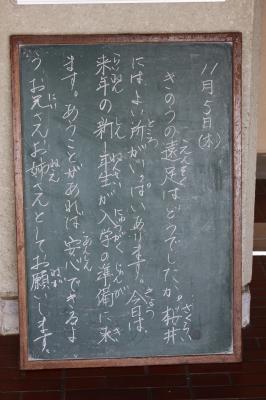 11月5日(木)
きのうの遠足はどうでしたか。桜井
にはよい所がいっぱいあります。今日は、
来年の新1年生が入学の準備に来
ます。あうことがあれば安心できるよ
うお兄さんお姉さんとしてお願いします。